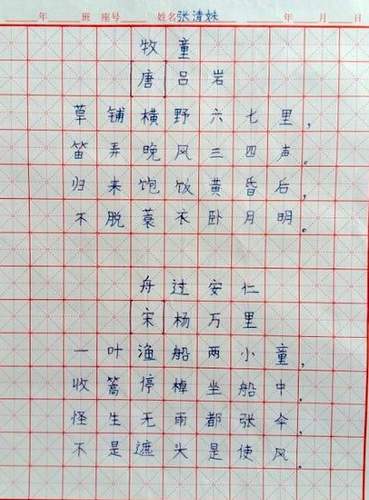 年 班 座号 姓名 张清妹 年 月 日
牧童
[唐] 吕岩
草铺横野六七里，
笛弄晚风三四声。
归来饱饭黄昏后，
不脱蓑衣卧月明。
舟过安仁
[宋] 杨万里
一叶渔船两小童，
收篙停棹坐船中。
怪生无雨都张伞，
不是遮头是使风。